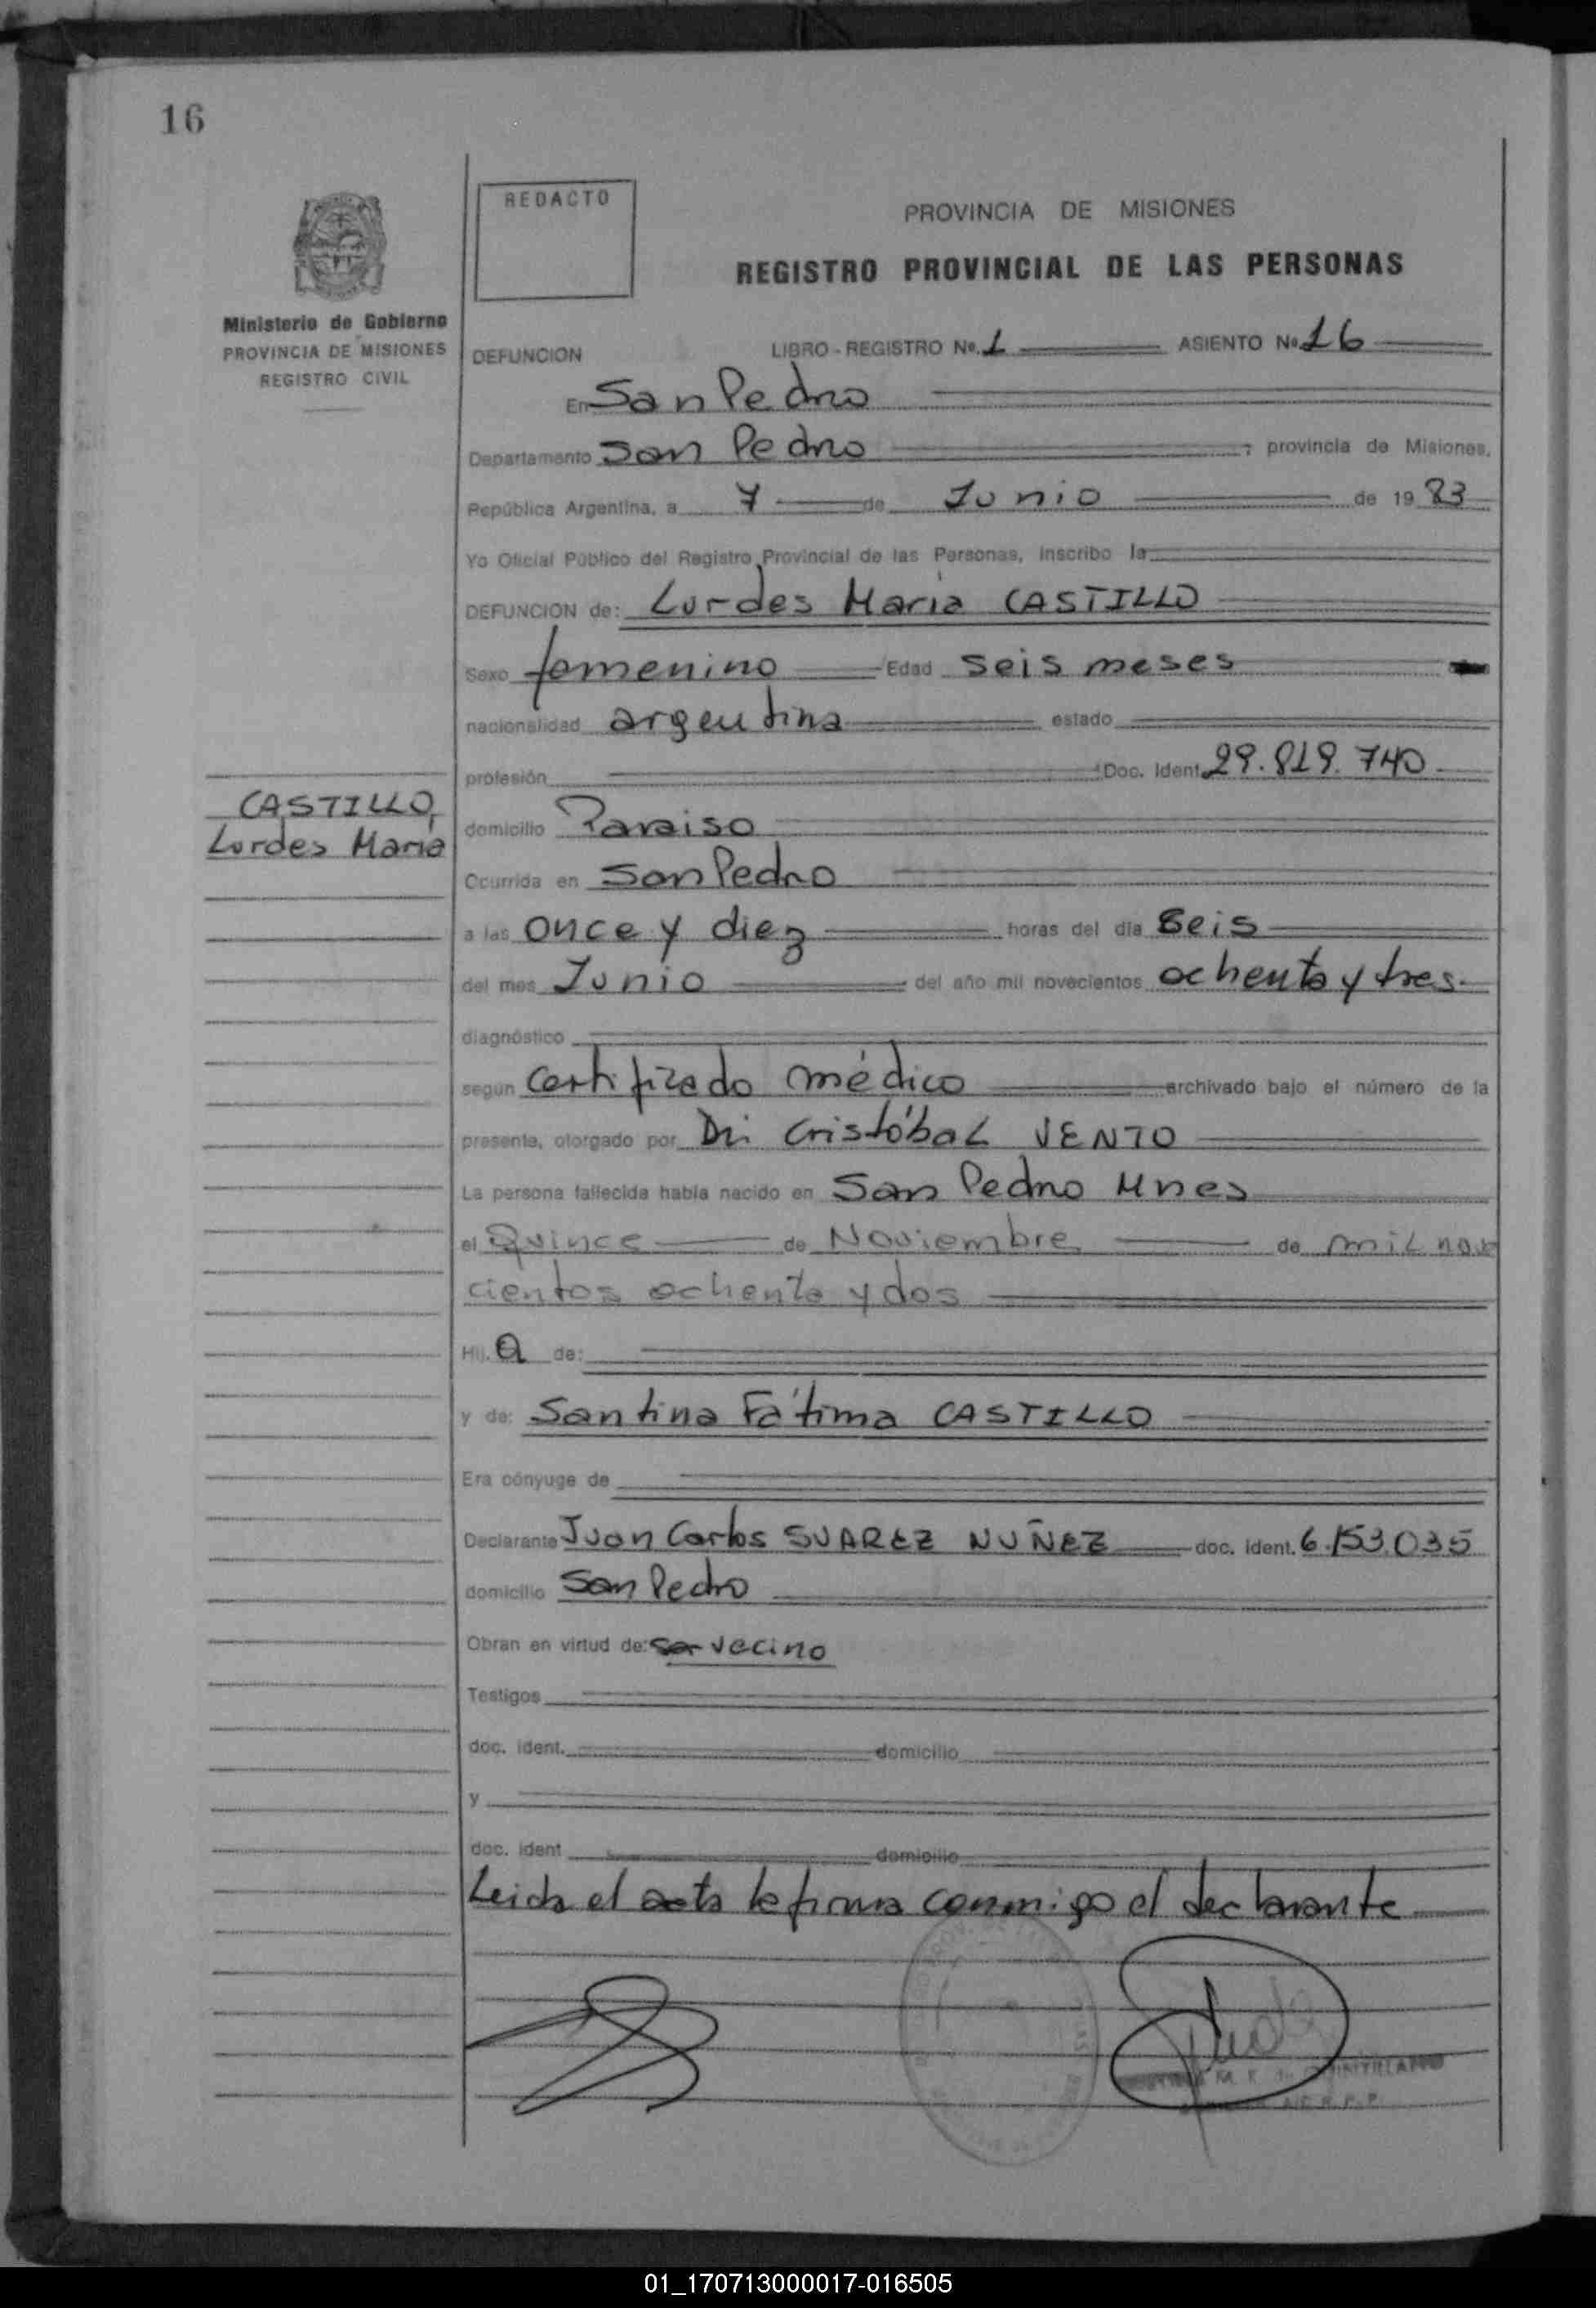 16
REDACTO
PROVINCIA DE MISIONES
REGISTRO PROVINCIAL DE LAS PERSONAS
Ministerio de Gobierno
PROVINCIA DE MISIONES
REGISTRO CIVIL
DEFUNCION LIBRO - REGISTRO Nº. 1 ASIENTO Nº 16
En San Pedro
Departamento San Pedro ; provincia de Misiones.
República Argentina, a 7 de Junio de 19 83
Yo Oficial Público del Registro Provincial de las Personas, inscribo la
DEFUNCION de: Lurdes María CASTILLO
Sexo femenino Edad seis meses
nacionalidad argentina estado
profesión Doc. Ident. 29.819.740
CASTILLO,
Lurdes María
domicilio Paraiso
Ocurrida en San Pedro
a las once y diez horas del día Seis
del mes Junio del año mil novecientos ochenta y tres
diagnóstico
según Certificado médico archivado bajo el número de la
presente, otorgado por Dr. Cristóbal VENTO
La persona fallecida había nacido en San Pedro Mnes
el Quince de Noviembre de mil nove
cientos ochenta y dos
Hij. a de:
y de: Santina Fátima CASTILLO
Era cónyuge de
Declarante Juan Carlos SUAREZ NUÑEZ doc. ident. 6.153.035
domicilio San Pedro
Obran en virtud de: ser vecino
Testigos
doc. ident. domicilio
y
doc. ident domicilio
Leida el acta la firma conmigo el declarante
01_170713000017-016505